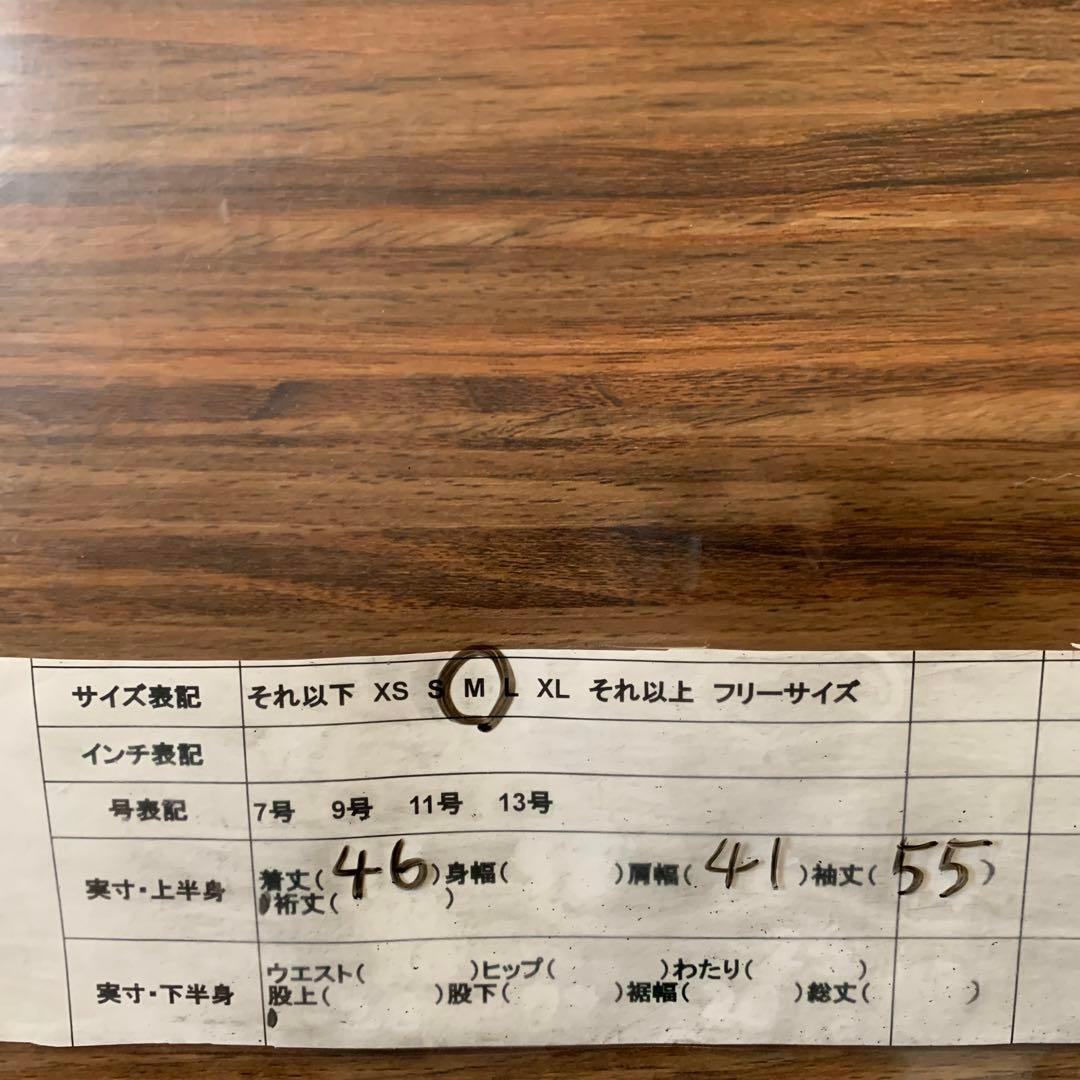 サイズ表記 それ以下 XS S M L XL それ以上 フリーサイズ
インチ表記
号表記 7号 9号 11号 13号
実寸・上半身 着丈(46)身幅( )肩幅(41)袖丈(55)
裄丈( )
ウエスト( )ヒップ( )わたり( )
実寸・下半身 股上( )股下( )裾幅( )総丈( )